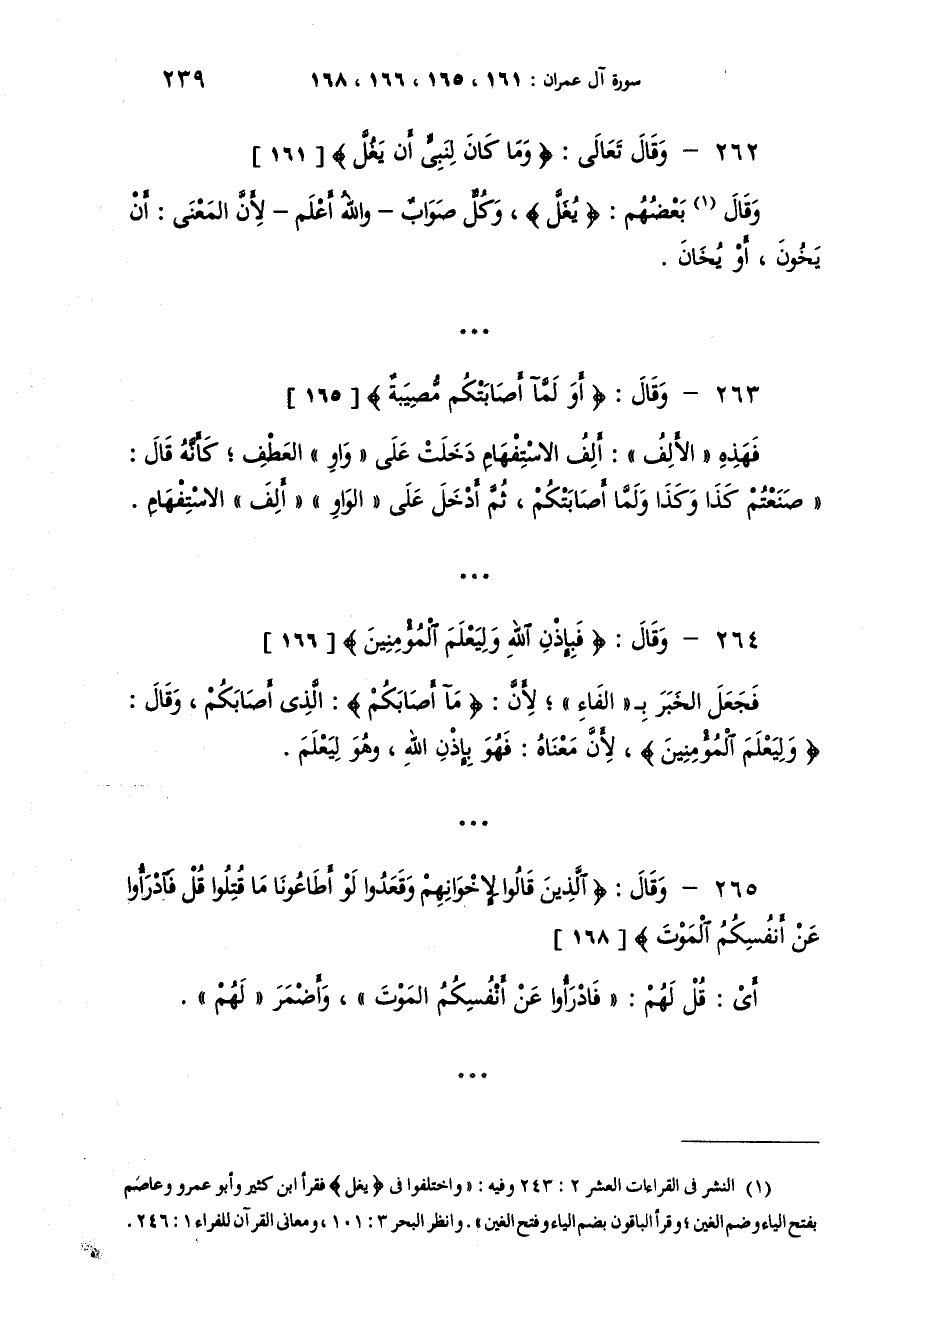 سورة آل عمران : ١٦١ ، ١٦٥ ، ١٦٦ ، ١٦٨ ٢٣٩
٢٦٢ – وَقَالَ تَعَالَى : ﴿ وَمَا كَانَ لِنَبِيٍّ أَن يَغُلَّ ﴾ [ ١٦١ ]
وَقَالَ (١) بَعْضُهُم : ﴿ يُغَلَّ ﴾ ، وَكُلٌّ صَوَابٌ – واللهُ أَعْلَم – لِأَنَّ المَعْنَى : أَنْ
يَخُونَ ، أَوْ يُخَانَ .
•••
٢٦٣ – وَقَالَ : ﴿ أَوَ لَمَّآ أَصَابَتْكُم مُّصِيبَةٌ ﴾ [ ١٦٥ ]
فَهَذِهِ « الأَلِفُ » : أَلِفُ الاسْتِفْهَامِ دَخَلَتْ عَلَى « وَاوِ » العَطْفِ ؛ كَأَنَّهُ قَالَ :
« صَنَعْتُمْ كَذَا وَكَذَا وَلَمَّا أَصَابَتْكُمْ ، ثُمَّ أَدْخَلَ عَلَى « الوَاوِ » « أَلِفَ » الاسْتِفْهَامِ .
•••
٢٦٤ – وَقَالَ : ﴿ فَبِإِذْنِ ٱللهِ وَلِيَعْلَمَ ٱلْمُؤْمِنِينَ ﴾ [ ١٦٦ ]
فَجَعَلَ الخَبَرَ بِـ« الفَاءِ » ؛ لِأَنَّ : ﴿ مَآ أَصَابَكُمْ ﴾ : الَّذِى أَصَابَكُمْ ، وَقَالَ :
﴿ وَلِيَعْلَمَ ٱلْمُؤْمِنِينَ ﴾ ، لِأَنَّ مَعْنَاهُ : فَهُوَ بِإِذْنِ اللهِ ، وهُوَ لِيَعْلَمَ .
•••
٢٦٥ – وَقَالَ : ﴿ ٱلَّذِينَ قَالُوا لِإِخْوَانِهِمْ وَقَعَدُوا لَوْ أَطَاعُونَا مَا قُتِلُوا قُلْ فَٱدْرَأُوا
عَنْ أَنفُسِكُمُ ٱلْمَوْتَ ﴾ [ ١٦٨ ]
أَىْ : قُلْ لَهُمْ : « فَادْرَأُوا عَنْ أَنْفُسِكُمُ المَوْتَ » ، وَأَضْمَرَ « لَهُمْ » .
•••
(١) النشر فى القراءات العشر ٢ : ٢٤٣ وفيه : « واختلفوا فى ﴿ يغل ﴾ فقرأ ابن كثير وأبو عمرو وعاصم
بفتح الياء وضم الغين ؛ وقرأ الباقون بضم الياء وفتح الغين » . وانظر البحر ٣ : ١٠١ ، ومعانى القرآن للفراء ١ : ٢٤٦ .